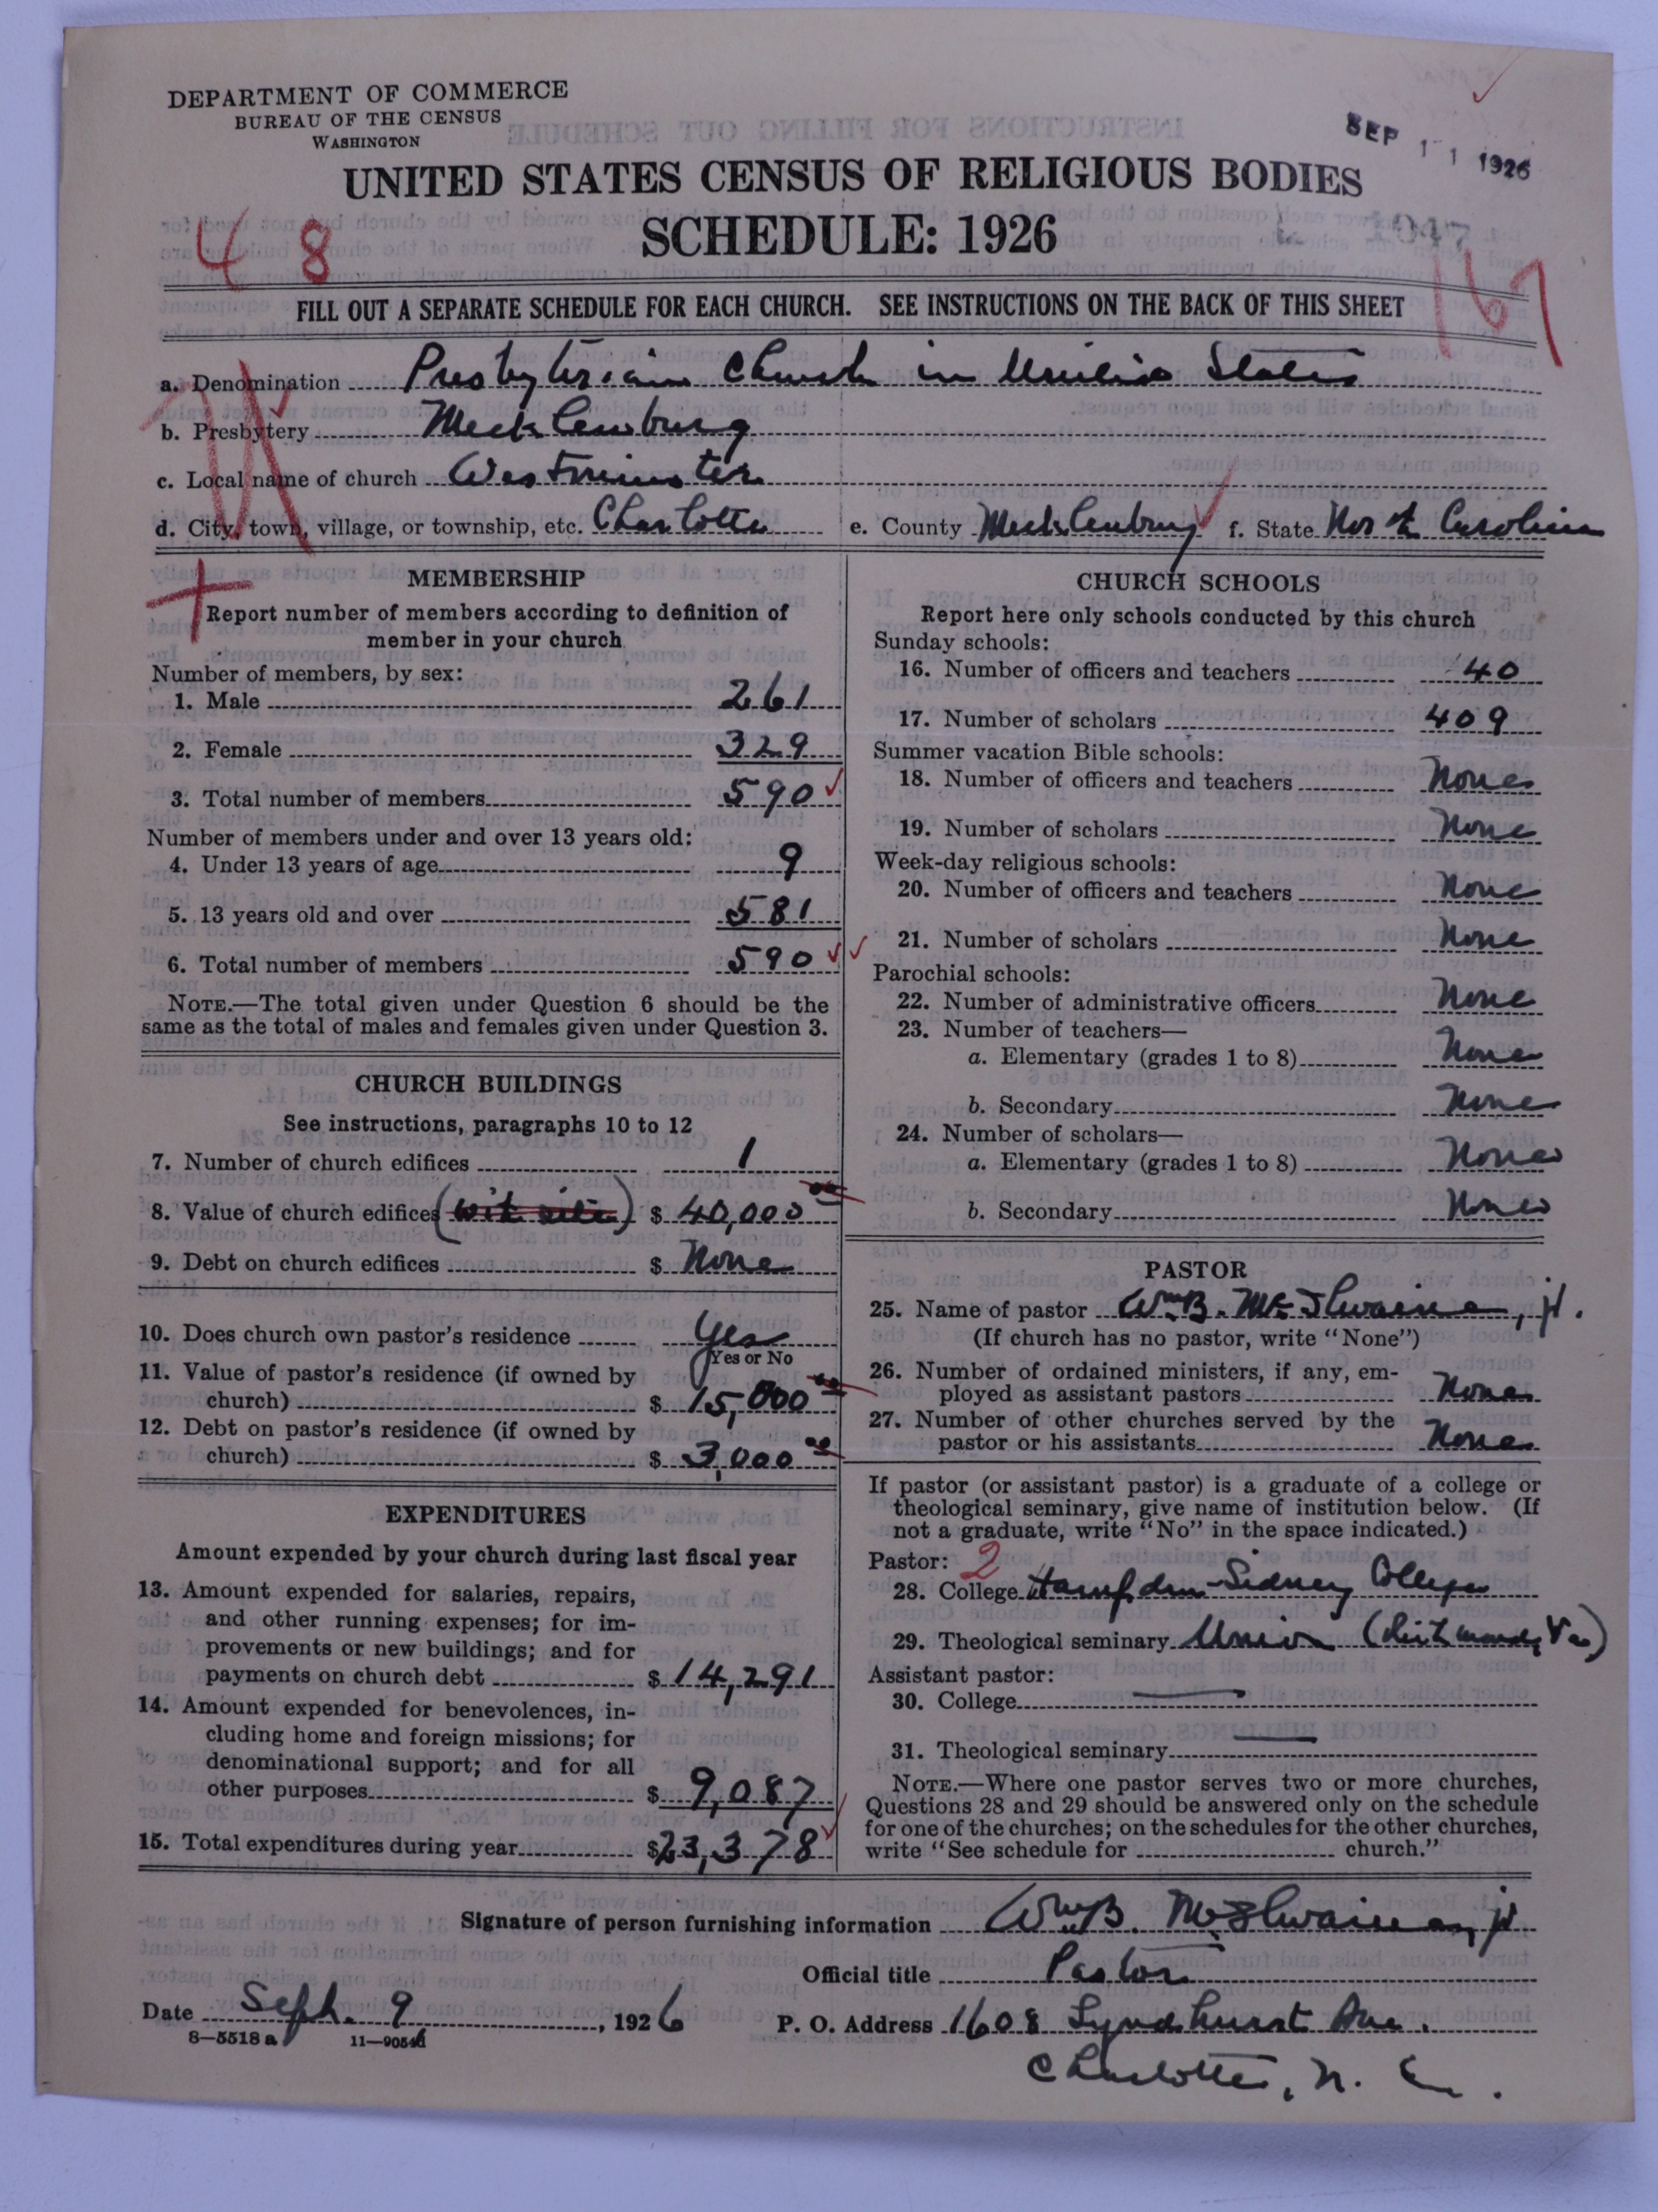 DEPARTMENT OF COMMERCE
BUREAU OF THE CENSUS
WASHINGTON
SEP 11 1926
UNITED STATES CENSUS OF RELIGIOUS BODIES
SCHEDULE: 1926
4 8
167
FILL OUT A SEPARATE SCHEDULE FOR EACH CHURCH. SEE INSTRUCTIONS ON THE BACK OF THIS SHEET
a. Denomination Presbyterian Church in United States
b. Presbytery Mecklenburg
c. Local name of church Westminster
d. City, town, village, or township, etc. Charlotte e. County Mecklenburg f. State North Carolina
MEMBERSHIP
Report number of members according to definition of
member in your church
Number of members, by sex:
1. Male 261
2. Female 329
3. Total number of members 590
Number of members under and over 13 years old:
4. Under 13 years of age 9
5. 13 years old and over 581
6. Total number of members 590
NOTE.—The total given under Question 6 should be the
same as the total of males and females given under Question 3.
CHURCH BUILDINGS
See instructions, paragraphs 10 to 12
7. Number of church edifices 1
8. Value of church edifices (wit site) $ 40,000 00
9. Debt on church edifices $ None
10. Does church own pastor's residence Yes
Yes or No
11. Value of pastor's residence (if owned by
church) $ 15,000 00
12. Debt on pastor's residence (if owned by
church) $ 3,000 00
EXPENDITURES
Amount expended by your church during last fiscal year
13. Amount expended for salaries, repairs,
and other running expenses; for im-
provements or new buildings; and for
payments on church debt $ 14,291
14. Amount expended for benevolences, in-
cluding home and foreign missions; for
denominational support; and for all
other purposes $ 9,087
15. Total expenditures during year $23,378
CHURCH SCHOOLS
Report here only schools conducted by this church
Sunday schools:
16. Number of officers and teachers 40
17. Number of scholars 409
Summer vacation Bible schools:
18. Number of officers and teachers None
19. Number of scholars None
Week-day religious schools:
20. Number of officers and teachers None
21. Number of scholars None
Parochial schools:
22. Number of administrative officers None
23. Number of teachers—
a. Elementary (grades 1 to 8) None
b. Secondary None
24. Number of scholars—
a. Elementary (grades 1 to 8) None
b. Secondary None
PASTOR
25. Name of pastor Wm B. McIlwaine, jr.
(If church has no pastor, write "None")
26. Number of ordained ministers, if any, em-
ployed as assistant pastors None
27. Number of other churches served by the
pastor or his assistants None
If pastor (or assistant pastor) is a graduate of a college or
theological seminary, give name of institution below. (If
not a graduate, write "No" in the space indicated.)
Pastor: 2
28. College Hampden-Sidney College
29. Theological seminary Union (Richmond, Va)
Assistant pastor:
30. College
31. Theological seminary
NOTE.—Where one pastor serves two or more churches,
Questions 28 and 29 should be answered only on the schedule
for one of the churches; on the schedules for the other churches,
write "See schedule for church."
Signature of person furnishing information Wm B. McIlwaine, jr
Official title Pastor
Date Sept. 9, 1926 P. O. Address 1608 Lyndhurst Ave.
8—5518 a 11—9054
Charlotte, N. C.